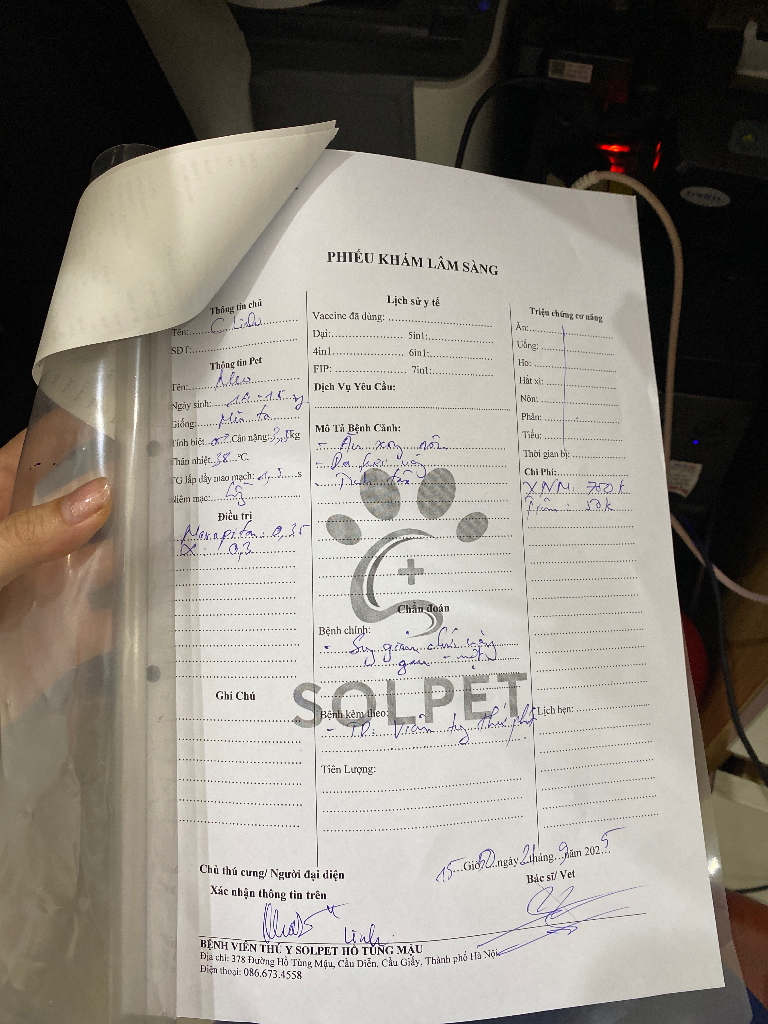 PHIẾU KHÁM LÂM SÀNG
Thông tin chủ
Tên: C Linh
SĐT:
Thông tin Pet
Tên: Meo
Ngày sinh:
Giống: Mèo ta
Tính biệt: Cân nặng: 3,5kg
Thân nhiệt: 38 °C.
TG lấp đầy mao mạch: 1,5 s
Niêm mạc:
Điều trị
Maropitan: 0,35
0,3
Ghi Chú
Lịch sử y tế
Vaccine đã dùng:
Dại: 5in1:
4in1 6in1:
FIP: 7in1:
Dịch Vụ Yêu Cầu:
Mô Tả Bệnh Cảnh:
- Ăn xong nôn
- Da hơi vàng
-
Chẩn đoán
Bệnh chính:
- Suy giảm chức năng
gan - mật
SOLPET
Bệnh kèm theo:
- TD: Viêm tụy thứ phát
Tiên Lượng:
Triệu chứng cơ năng
Ăn:
Uống:
Ho:
Hắt xì:
Nôn:
Phân:
Tiểu:
Thời gian bị:
Chi Phí:
XNM: 700k
Tiêm: 50k
Lịch hẹn:
15 Giờ 50 ngày 21 tháng 9 năm 2025
Chủ thú cưng/ Người đại diện
Bác sĩ/ Vet
Xác nhận thông tin trên
Linh
BỆNH VIỆN THÚ Y SOLPET HỒ TÙNG MẬU
Địa chỉ: 378 Đường Hồ Tùng Mậu, Cầu Diễn, Cầu Giấy, Thành phố Hà Nội
Điện thoại: 086.673.4558